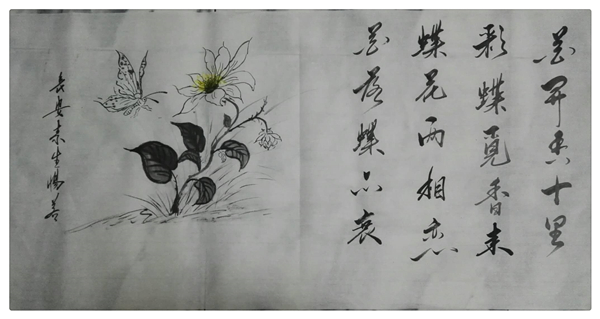 花开十里
彩蝶觅香来
蝶花两相恋
花落蝶亦哀
長安生